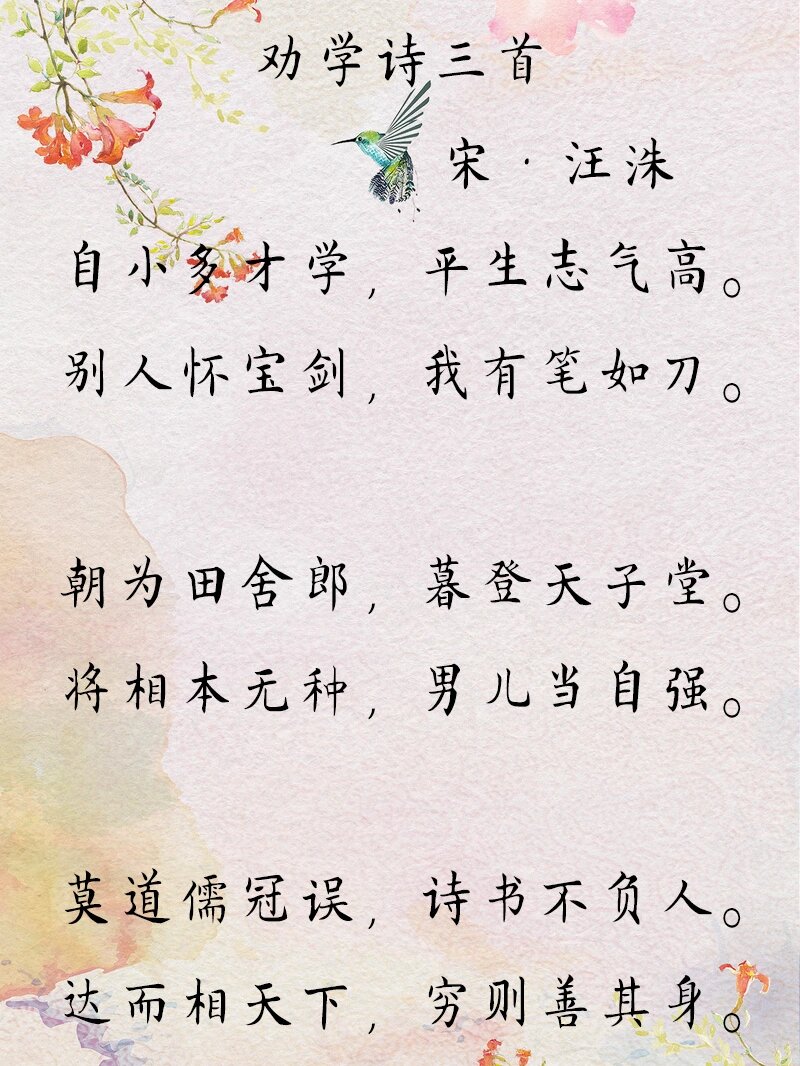 劝学诗三首
宋·汪洙
自小多才学，平生志气高。
别人怀宝剑，我有笔如刀。
朝为田舍郎，暮登天子堂。
将相本无种，男儿当自强。
莫道儒冠误，诗书不负人。
达而相天下，穷则善其身。